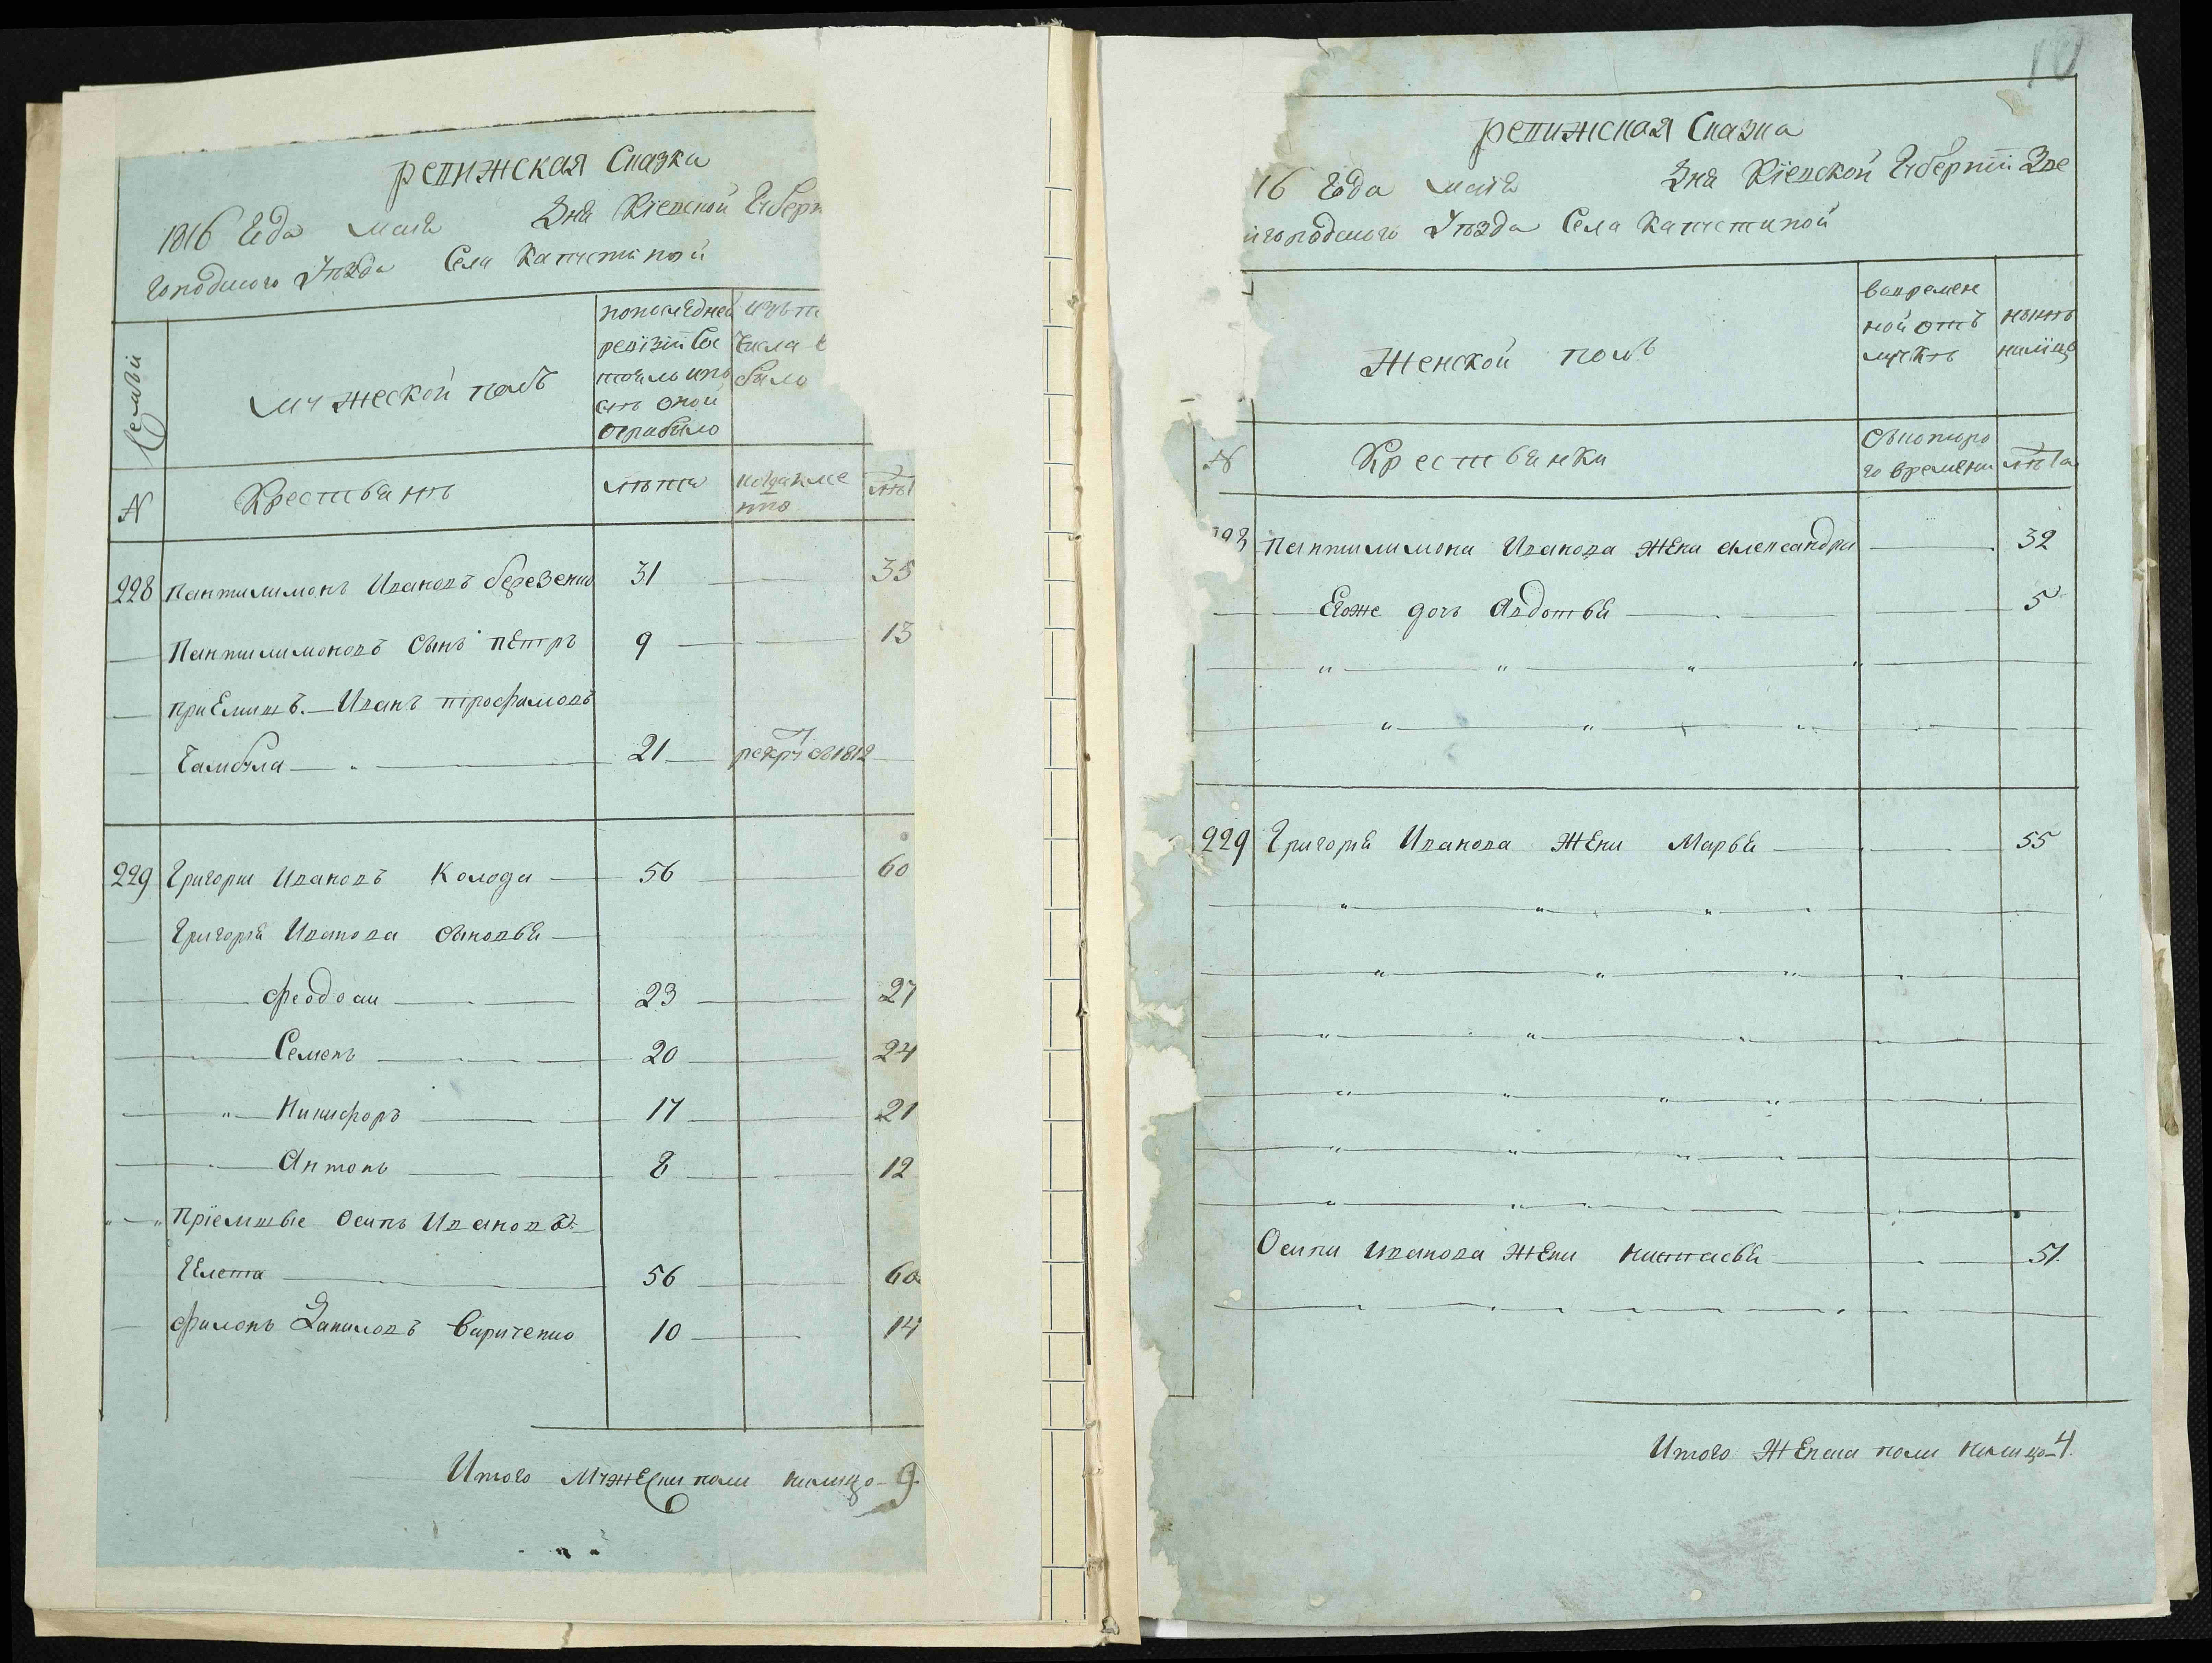 ревижская Сказка
1816 Года маия дня Киевской Губерн
городского Уезда Села Капустиной
Семьи
мужеской полъ
попоследней
ревизии Со
стояло ипо
слѣ оной
прибыло
изъ т
Числа
было
N
Крестьянъ
лѣта
когда име
нно
лѣт
228 Пантилимонъ Ивановъ березенко 31 35
Пантилимоновъ Сынъ Пётръ 9 13
приЕмишъ. Иванъ трофимовъ
Чамбула 21 рекру въ 1812
229 Григории Ивановъ Колода 56 60
Григория Иванова сыновья
Феодоси 23 27
Семенъ 20 24
Никифоръ 17 21
Антонъ 8 12
Приемшые Осипъ Ивановъ
Гелета 56 60
Филонъ Даниловъ Вариченко 10 14
Итого МужЕски поли налицо 9.
10
ревижская Сказка
16 Года маия дня Киевской Губернии Зве
игородского Уезда Села Капустиной
Женской полъ
вовремен
ной отъ
лучкѣ
нынѣ
налицо
N
Крестьянки
Съкоторо
го времени
лѣта
228 Пантилимона Иванова жЕна Александра 32
Егоже дочь Авдотья 5
229 Григория Иванова жЕна Марья 55
Осипа Иванова жЕна Настасья 51.
Итого ЖЕнска пола налицо 4.